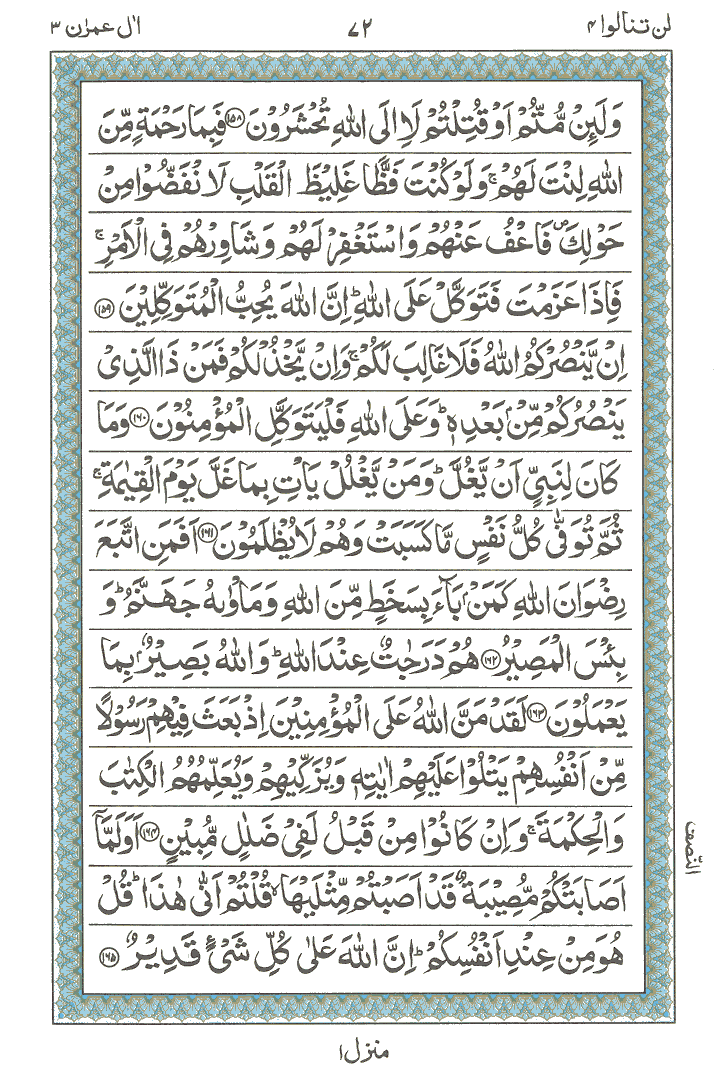 لن تنالوا ۴ ۷۲ اٰل عمرٰن ۳
وَلَئِنْ مُّتُّمْ اَوْ قُتِلْتُمْ لَاِالَى اللّٰهِ تُحْشَرُوْنَ ﴿۱۵۸﴾ فَبِمَا رَحْمَةٍ مِّنَ
اللّٰهِ لِنْتَ لَهُمْ ۚ وَلَوْ كُنْتَ فَظًّا غَلِيْظَ الْقَلْبِ لَا نْفَضُّوْا مِنْ
حَوْلِكَ ۪ فَاعْفُ عَنْهُمْ وَاسْتَغْفِرْ لَهُمْ وَشَاوِرْهُمْ فِى الْاَمْرِ ۚ
فَاِذَا عَزَمْتَ فَتَوَكَّلْ عَلَى اللّٰهِ ؕ اِنَّ اللّٰهَ يُحِبُّ الْمُتَوَكِّلِيْنَ ﴿۱۵۹﴾
اِنْ يَّنْصُرْكُمُ اللّٰهُ فَلَا غَالِبَ لَكُمْ ۚ وَاِنْ يَّخْذُلْكُمْ فَمَنْ ذَا الَّذِىْ
يَنْصُرُكُمْ مِّنْۢ بَعْدِهٖ ؕ وَعَلَى اللّٰهِ فَلْيَتَوَكَّلِ الْمُؤْمِنُوْنَ ﴿۱۶۰﴾ وَمَا
كَانَ لِنَبِىٍّ اَنْ يَّغُلَّ ؕ وَمَنْ يَّغْلُلْ يَاْتِ بِمَا غَلَّ يَوْمَ الْقِيٰمَةِ ۚ
ثُمَّ تُوَفّٰى كُلُّ نَفْسٍ مَّا كَسَبَتْ وَهُمْ لَا يُظْلَمُوْنَ ﴿۱۶۱﴾ اَفَمَنِ اتَّبَعَ
رِضْوَانَ اللّٰهِ كَمَنْۢ بَآءَ بِسَخَطٍ مِّنَ اللّٰهِ وَمَاْوٰىهُ جَهَنَّمُ ؕ وَ
بِئْسَ الْمَصِيْرُ ﴿۱۶۲﴾ هُمْ دَرَجٰتٌ عِنْدَ اللّٰهِ ؕ وَاللّٰهُ بَصِيْرٌۢ بِمَا
يَعْمَلُوْنَ ﴿۱۶۳﴾ لَقَدْ مَنَّ اللّٰهُ عَلَى الْمُؤْمِنِيْنَ اِذْ بَعَثَ فِيْهِمْ رَسُوْلًا
مِّنْ اَنْفُسِهِمْ يَتْلُوْا عَلَيْهِمْ اٰيٰتِهٖ وَيُزَكِّيْهِمْ وَيُعَلِّمُهُمُ الْكِتٰبَ
وَالْحِكْمَةَ ۚ وَاِنْ كَانُوْا مِنْ قَبْلُ لَفِىْ ضَلٰلٍ مُّبِيْنٍ ﴿۱۶۴﴾ اَوَلَمَّاۤ
اَصَابَتْكُمْ مُّصِيْبَةٌ قَدْ اَصَبْتُمْ مِّثْلَيْهَا ۙ قُلْتُمْ اَنّٰى هٰذَا ؕ قُلْ
هُوَ مِنْ عِنْدِ اَنْفُسِكُمْ ؕ اِنَّ اللّٰهَ عَلٰى كُلِّ شَىْءٍ قَدِيْرٌ ﴿۱۶۵﴾
النّصف
منزل ۱